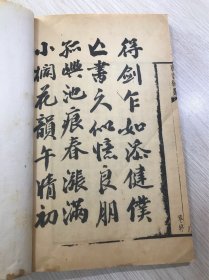 得劍乍如添健僕
亡書久似憶良朋
孤嶼池痕春漲滿
小欄花韻午晴初